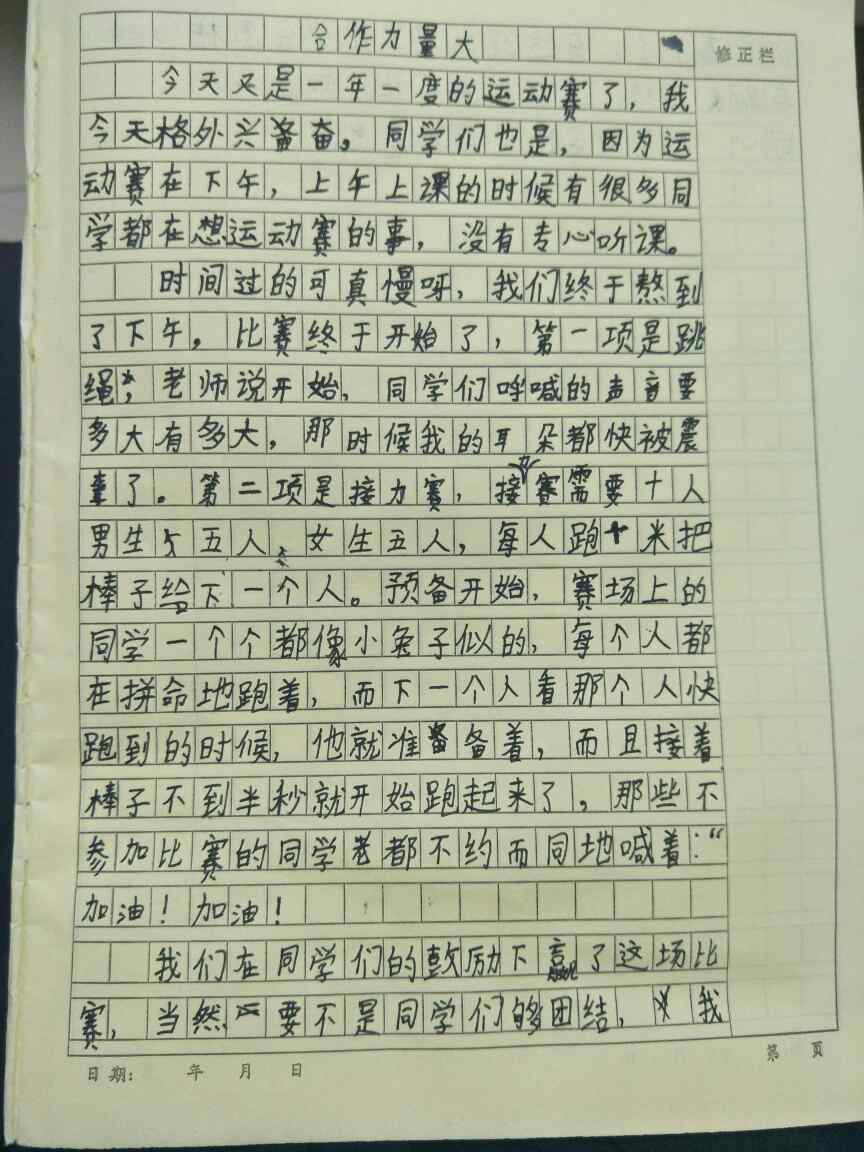 合作力量大
修正栏
今天又是一年一度的运动赛了，我
今天格外兴奋。同学们也是，因为运
动赛在下午，上午上课的时候有很多同
学都在想运动赛的事，没有专心听课。
时间过的可真慢呀，我们终于熬到
了下午。比赛终于开始了，第一项是跳
绳，老师说开始，同学们呼喊的声音要
多大有多大，那时候我的耳朵都快被震
聋了。第二项是接力赛，接力赛需要十人
男生五人、女生五人，每人跑十米把
棒子给下一个人。预备开始，赛场上的
同学一个个都像小兔子似的，每个人都
在拼命地跑着，而下一个人看那个人快
跑到的时候，他就准备着，而且接着
棒子不到半秒就开始跑起来了，那些不
参加比赛的同学都不约而同地喊着：“
加油！加油！
我们在同学们的鼓励下赢了这场比
赛，当然要不是同学们够团结，我
日期： 年 月 日
第 页